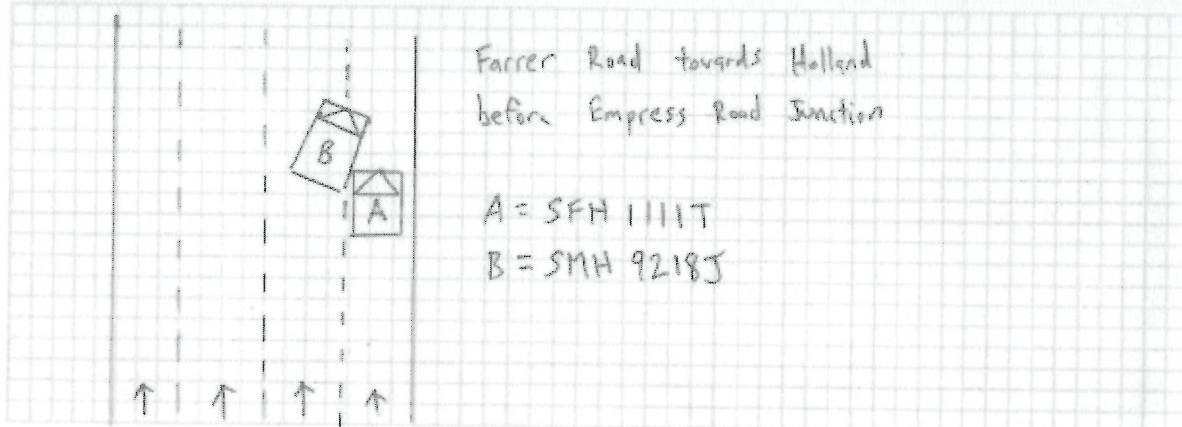 Farrer Road towards Holland
before Empress Road Junction
B
A
A = SFH 1111T
B = SMH 9218J